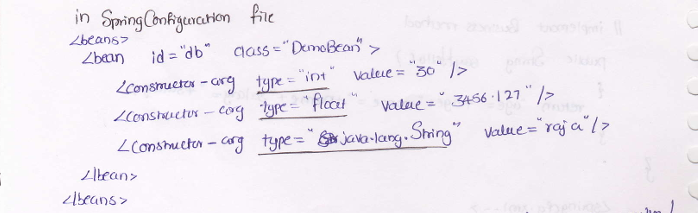 in Spring Configuration file
<beans>
<bean id="db" class="DemoBean">
<constructor-arg type="int" value="30"/>
<constructor-arg type="float" value="3456.127"/>
<constructor-arg type="java.lang.String" value="raja"/>
</bean>
</beans>